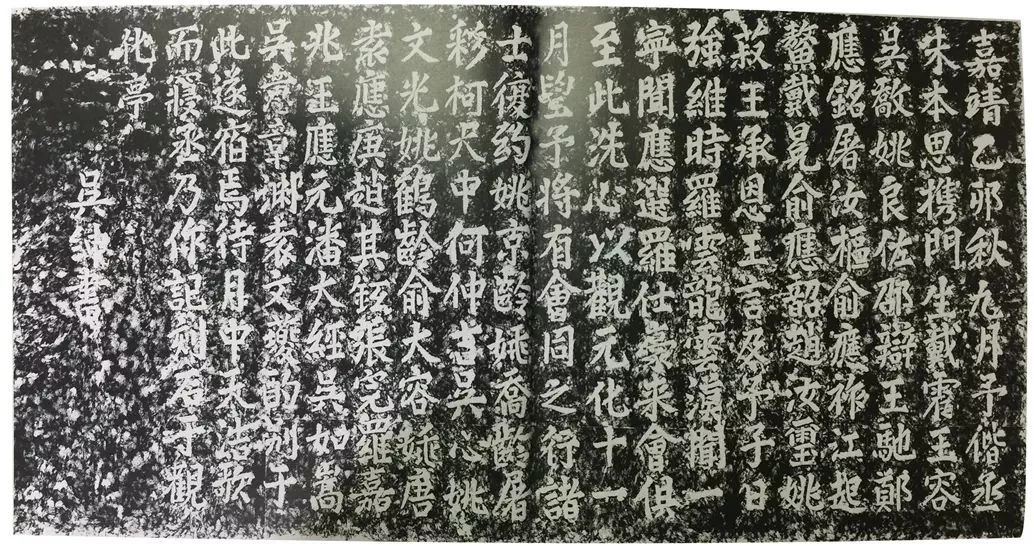 嘉靖乙卯秋九月予偕丞
朱本思携門生戴睿王容
吳敖姚良佐邵辯王馳鄭
應銘屠汝樞俞應祚江起
螯戴晃俞應韶趙汝璽姚
莪王承恩王言及子子日
強維時羅雲龍雲漢聞一
寧聞應選羅仕豪来會俱
至此洗心以觀元化十一
月望予將有會同之行諸
士復約姚京齡姚喬齡屠
夥柯尺申何仲吉吳心姚
文光姚鶴齡俞大容姚居
素應庚趙其鈺張完羅嘉
兆王應元潘大經吳如嵩
吳章袁文的別于
此遂宿焉待月中天浩歌
而寢丞乃作記刻石于觀
化亭
吳鉮書